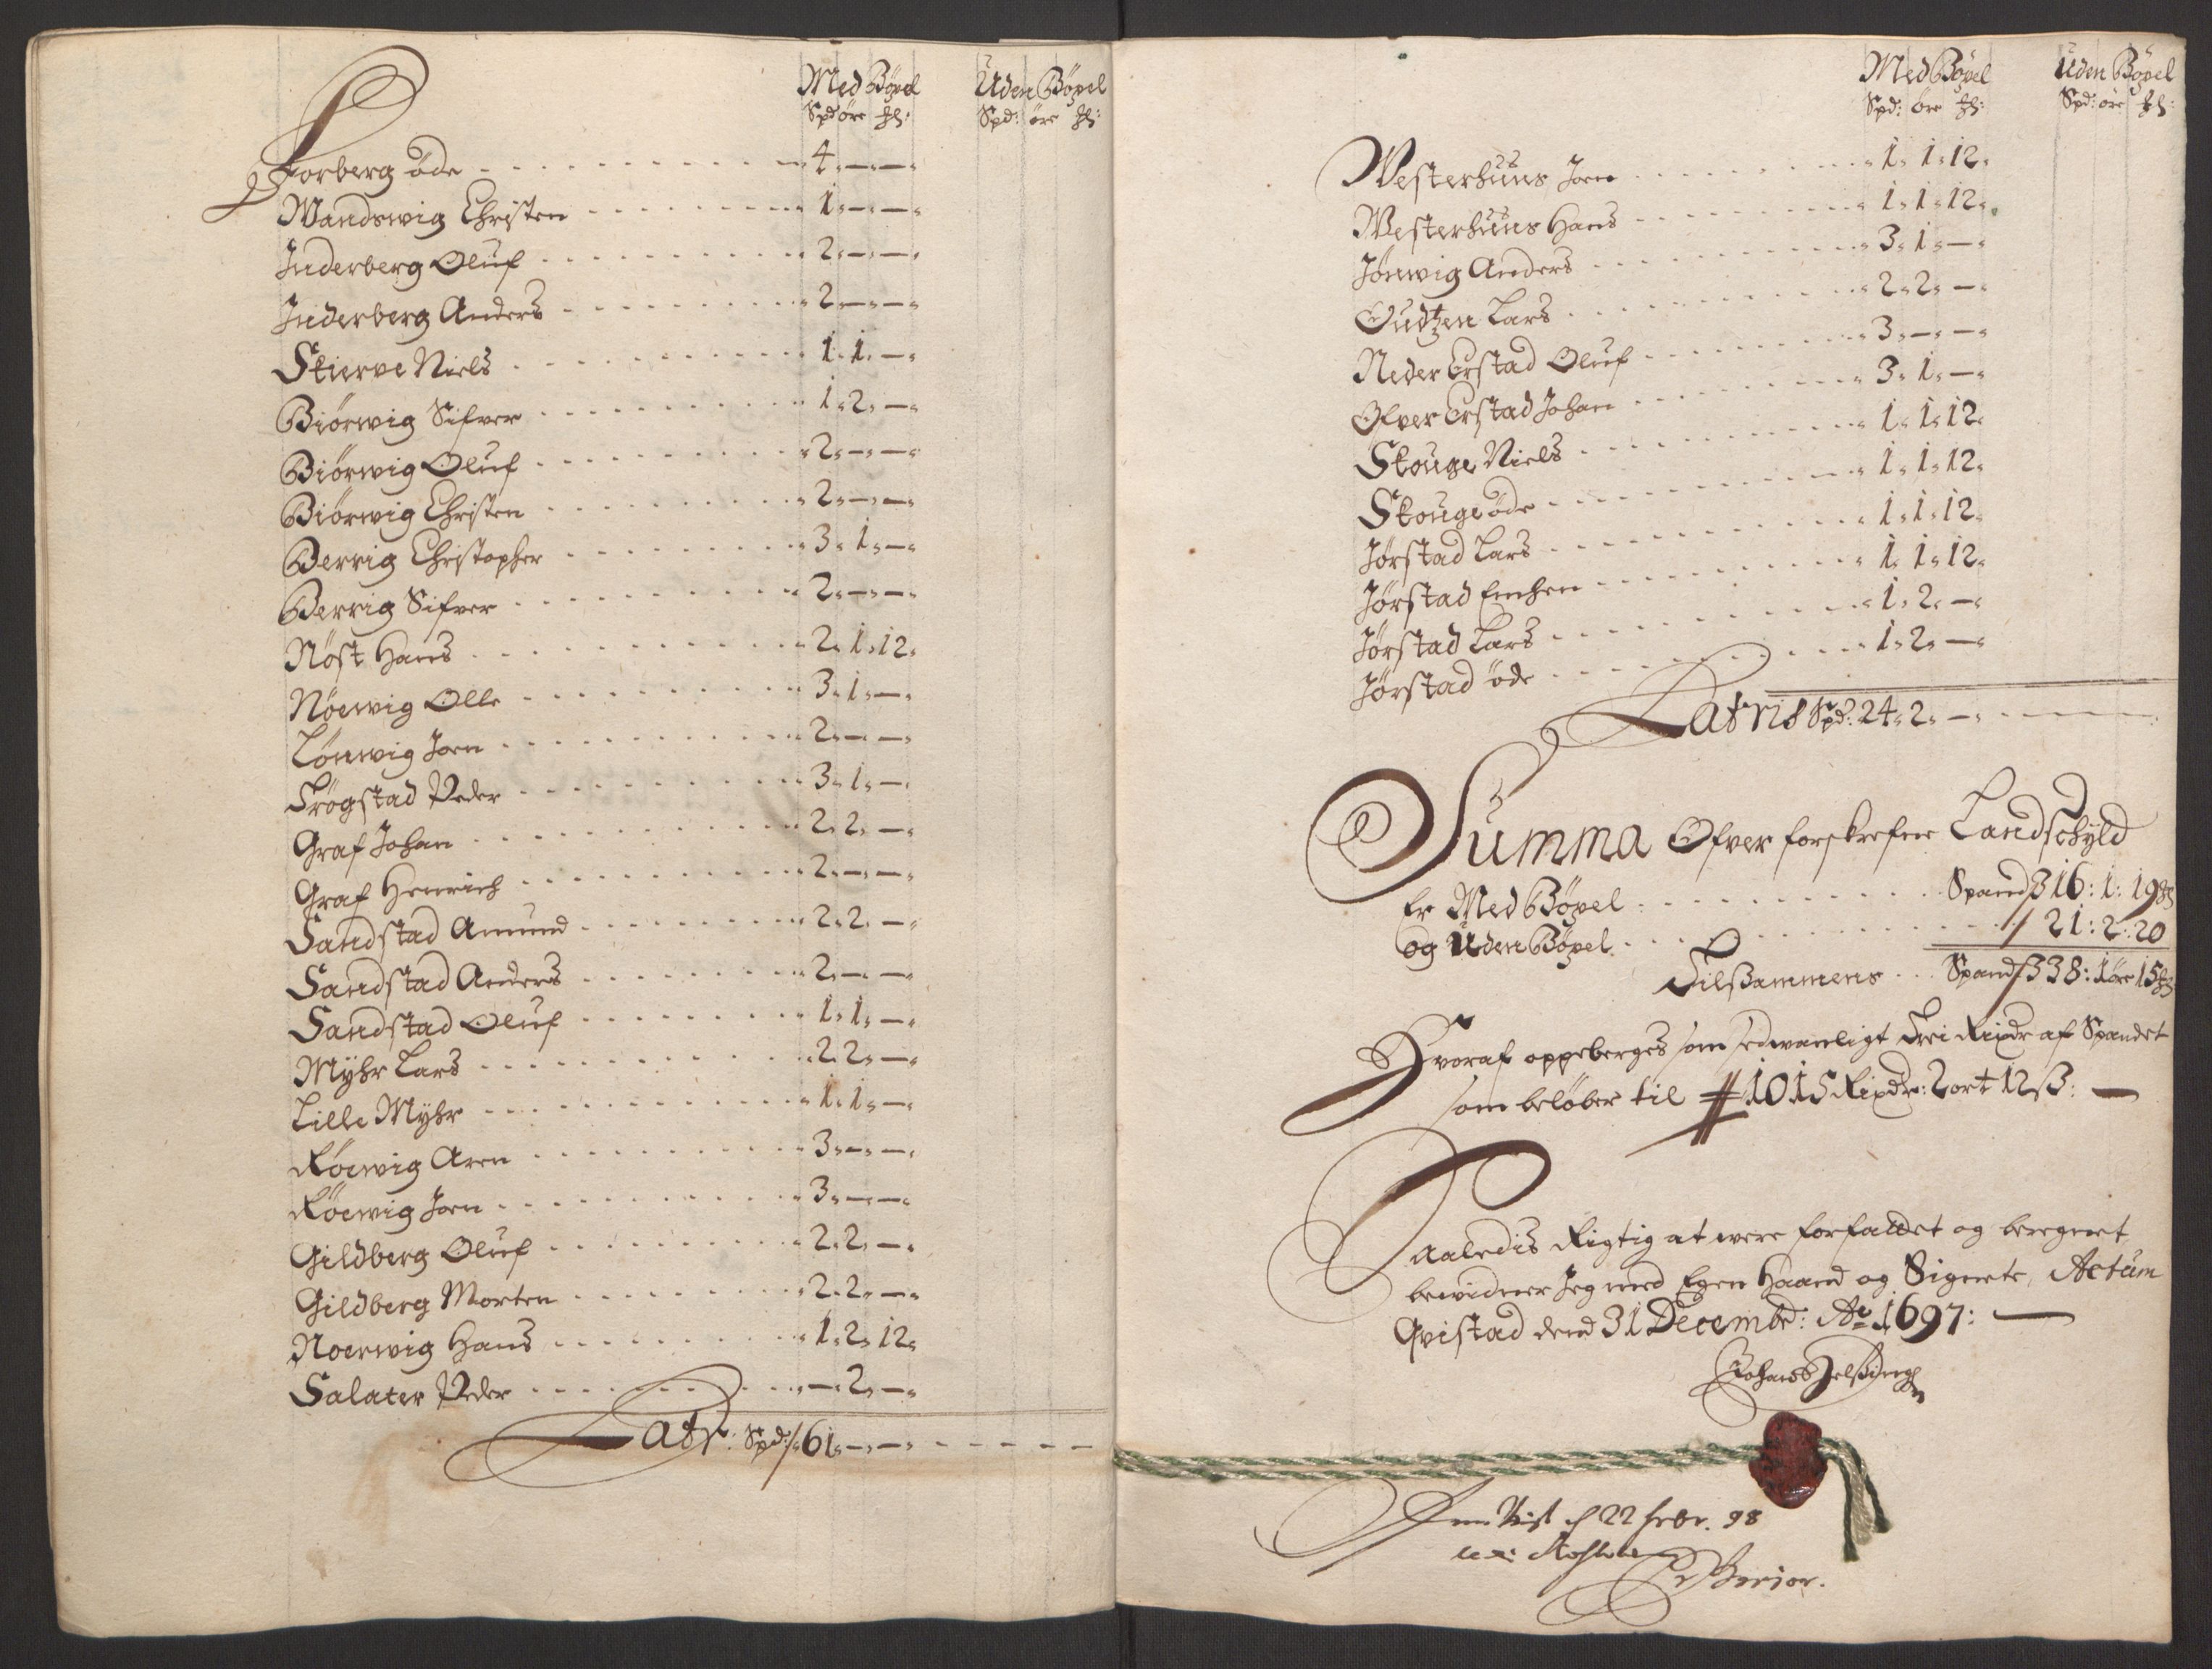 Med Böxel Uden Böxel
Spd öre ℔: Spd: öre ℔:
Forberg öde 4. — —
Wandswig Christen 1. — —
Inderberg Oluf 2. — —
Inderberg Anders 2. — —
Skierve Niels 1. 1. —
Biörwig Sifver 1. 2. —
Biörwig Oluf 2. — —
Biörwig Christen 2. — —
Berrig Christopher 3. 1. —
Berrig Sifver 2. — —
Nöst Hans 2. 1. 12.
Nöewig Olle 3. 1. —
Lönwig Jorn 2. — —
Trögstad Peder 3. 1. —
Graf Johan 2. 2. —
Graf Henrich 2. — —
Sandstad Amund 2. 2. —
Sandstad Anders 2. — —
Sandstad Oluf 1. 1. —
Myhr Lars 2. 2. —
Lille Myhr 1. 1. —
Röewig Aren 3. — —
Röewig Jorn 3. — —
Gildberg Oluf 2. 2. —
Gildberg Morten 2. 2. —
Noerwig Hans 1. 2. 12.
Salater Peder — 2. —
Latr: Spd: 61. — —
Med Böxel Uden Böxel
Spd: öre ℔: Spd: öre ℔:
Westerhuus Jorn 1. 1. 12.
Westerhuus Hans 1. 1. 12.
Jönwig Anders 3. 1. —
Oudtzen Lars 2. 2. —
Neder Erstad Oluf 3. — —
Ofver Erstad Johan 3. 1. —
Skouge Niels 1. 1. 12.
Skouge öde 1. 1. 12.
Jörstad Lars 1. 1. 12.
Jörstad Enchen 1. 1. 12.
Jörstad Lars 1. 2. —
Jörstad öde 1. 2. —
Latris Spd: 24. 2. —
Summa Ofver forskrefne Landschyld
Er Med Böxel Spand 316: 1: 19 ℔
og Uden Böxel 21: 2: 20
Tilsammens Spand 338: 1 öre 15 ℔
Hvoraf oppeberges som sedwanligt Trei Rixdr af Spandet
som beløber til 1015 Rixdr: 2 ort 12 ß: —
Saaledis Rigtig at were forfaldet og beregnet
bewidner Jeg med Egen Haand og Signete, Actum
Qvistad dend 31 Decembr: Ao 1697: —
22 febr. 98